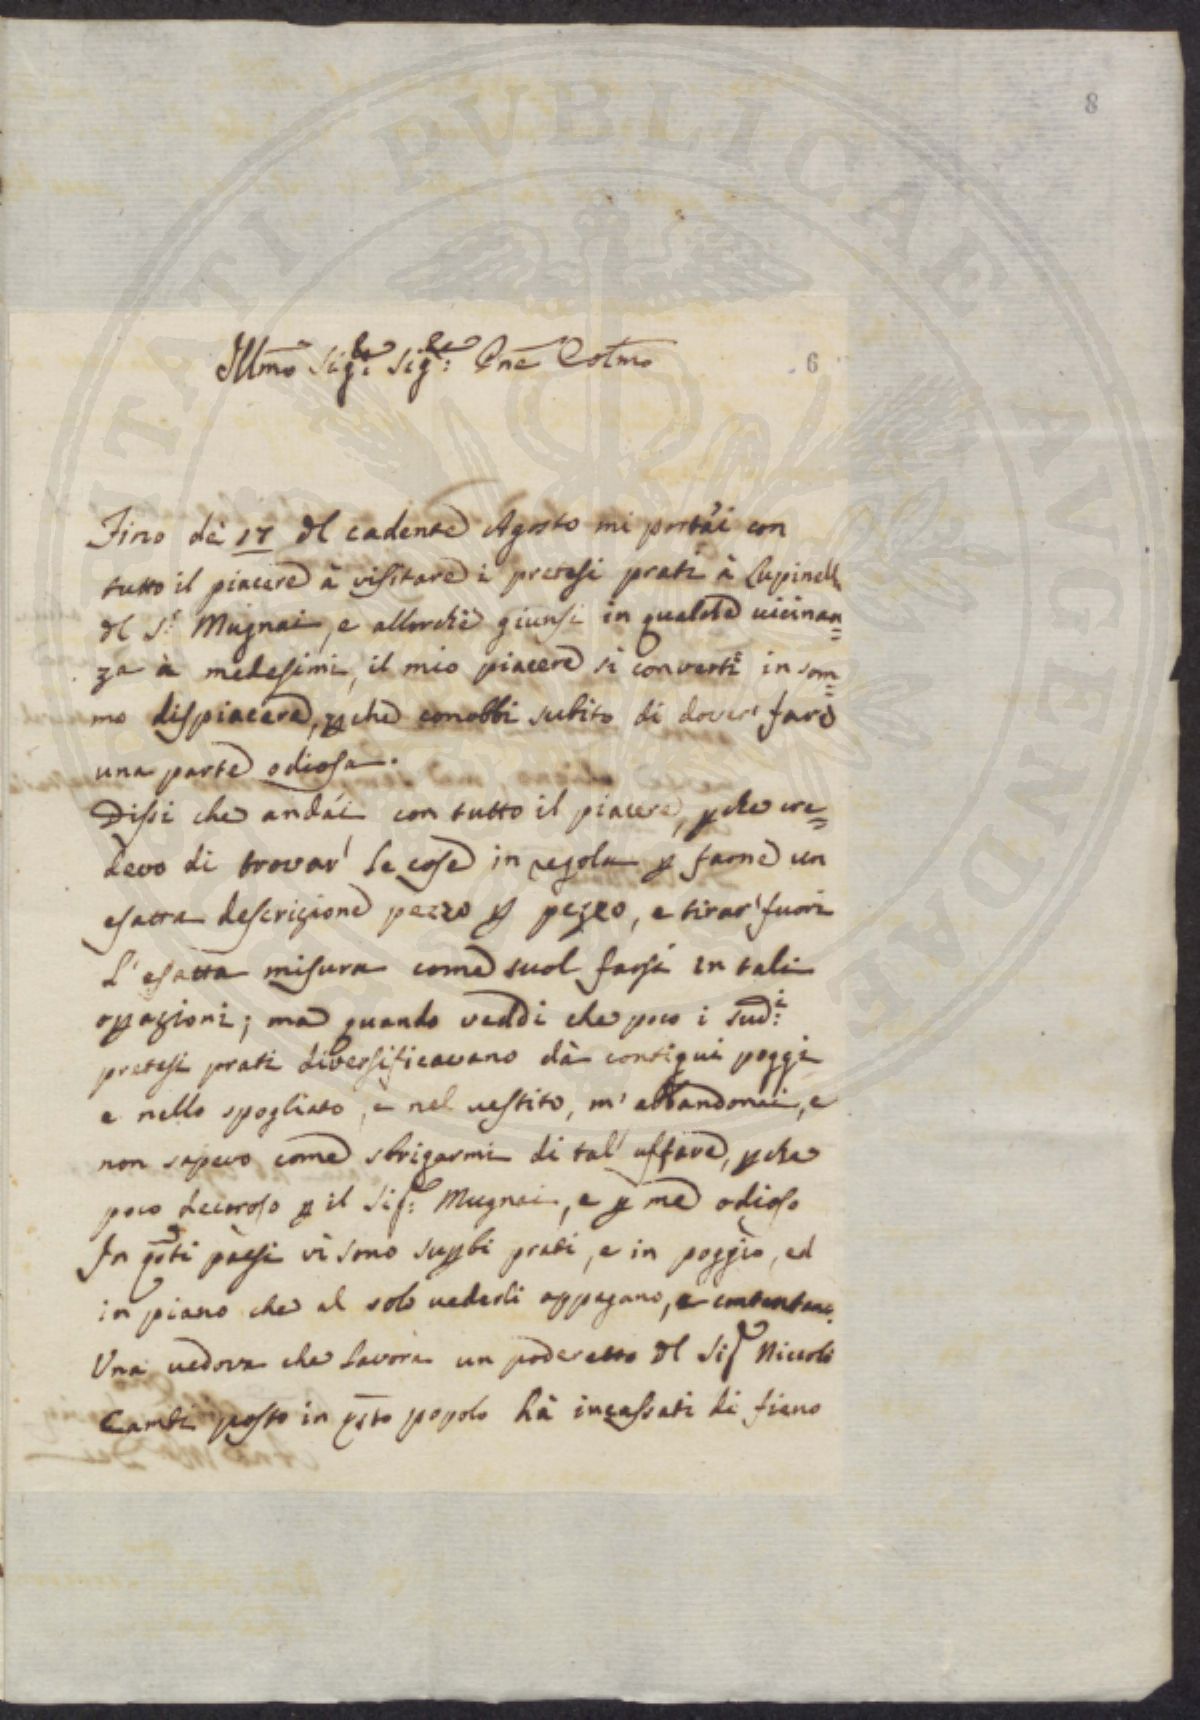 8
Illmo Sigre: Sigre: Pne Colmo
6
Fino dè 17 del cadente Agosto mi portai con
tutto il piacere à visitare i pretesi prati à Lupinelli
del S:r Mugnai, e allorchè giunsi in qualche vicinan=
za à medesimi, il mio piacere si convertì in som=
mo dispiacere, pche conobbi subito di dover' fare
una parte odiosa.
Dissi che andái con tutto il piacere, pche cre=
devo di trovar' le cose in regola p farne un
esatta descrizione pezzo p pezzo, e tirar' fuori
l'esatta misura come suol farsi in tali
opazioni; ma quando veddi che poco i sud:i
pretesi prati diversificavano dà contigui poggi
e nello spogliato, e nel vestito, m' abbandonai, e
non sapevo come sbrigarmi di tal' affare, pche
poco decoroso p il Sig: Mugnai, e p me odioso
In qsti paesi vi sono supbi prati, e in poggio, ed
in piano che al solo vederli appagano, e contentano.
Una vedova che lavora un poderetto del Sig Niccolò
Cambi posto in qsto popolo hà incassati di fieno
PUBLICAE